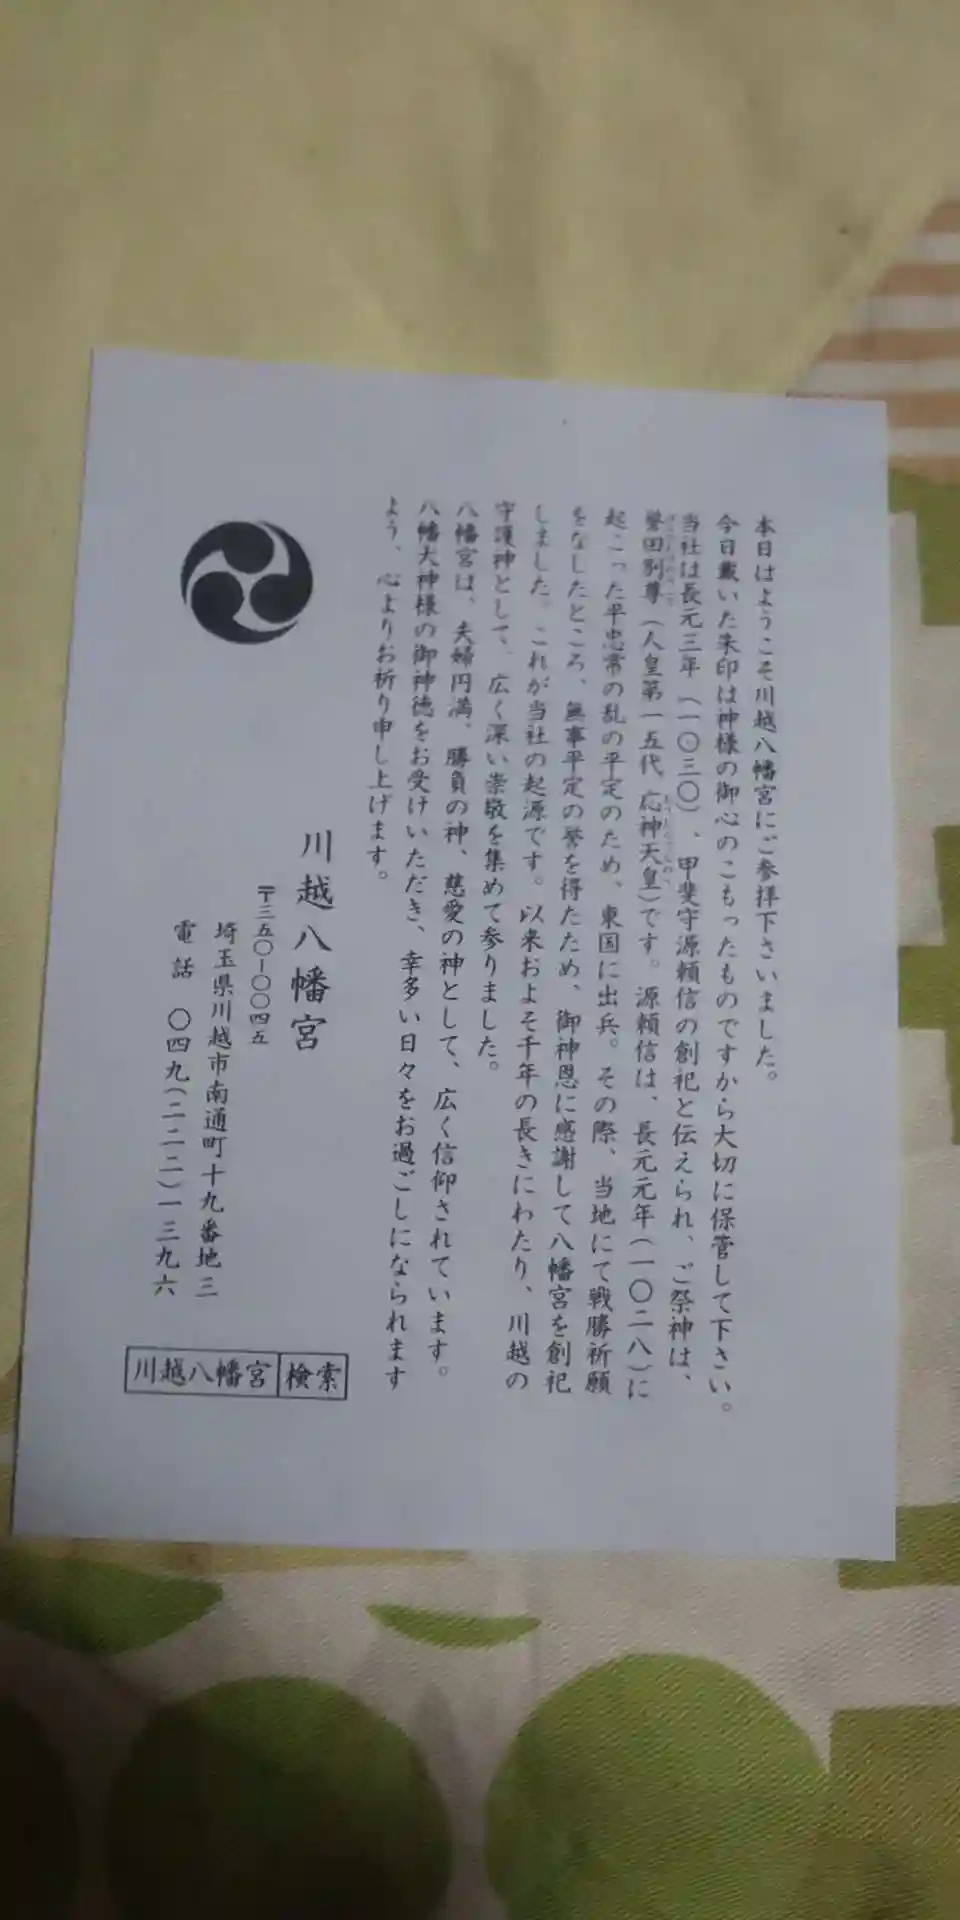 本日はようこそ川越八幡宮にご参拝下さいました。
今日戴いた朱印は神様の御心のこもったものですから大切に保管して下さい。
当社は長元三年(一〇三〇)、甲斐守源頼信の創祀と伝えられ、ご祭神は、
誉田別尊(人皇第一五代 応神天皇)です。源頼信は、長元元年(一〇二八)に
起こった平忠常の乱の平定のため、東国に出兵。その際、当地にて戦勝祈願
をなしたところ、無事平定の誉を得たため、御神恩に感謝して八幡宮を創祀
しました。これが当社の起源です。以来およそ千年の長きにわたり、川越の
守護神として、広く深い崇敬を集めて参りました。
八幡宮は、夫婦円満、勝負の神、慈愛の神として、広く信仰されています。
八幡大神様の御神徳をお受けいただき、幸多い日々をお過ごしになられます
よう、心よりお祈り申し上げます。
川越八幡宮
〒三五〇-〇〇四五
埼玉県川越市南通町十九番地三
電話 〇四九(二二二)一三九六
川越八幡宮 検索